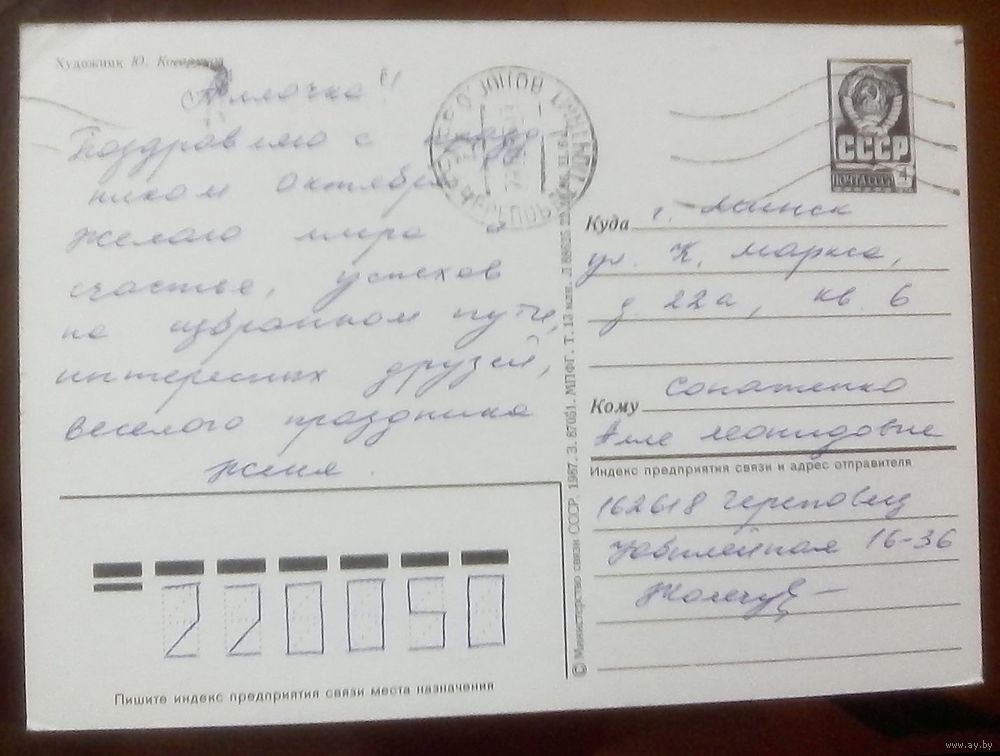 Художник Ю.
Аллочка!
Поздравляю с празд
ником октября
желаю мира и
счастья, успехов
на избранном пути,
интересных друзей,
веселого праздника
Женя.
СССР
ПОЧТА СССР 4
Куда г. Минск
ул. К. Маркса,
д. 22а, кв. 6
Кому
Алле Леонидовне
Индекс предприятия связи и адрес отправителя
162618 Череповец
Юбилейная 16-36
220050
Пишите индекс предприятия связи места назначения
© Министерство связи СССР. 1987. З. 87051. МПФГ. Т. 13 млн.
www.ay.by